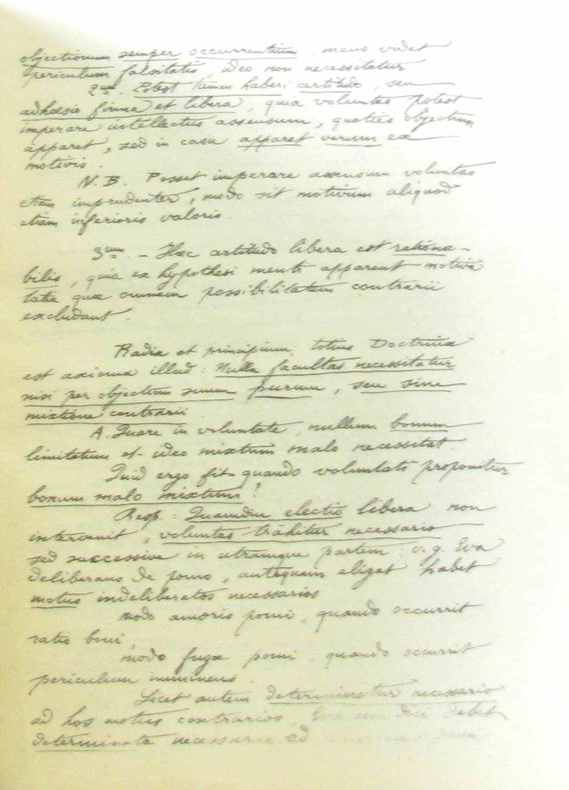 objectionum semper occurrentium, mens videt
periculum falsitatis, ideo non necessitatur
2um Potest tamen haberi certitudo, seu
adhaesio firma et libera, quia voluntas potest
imperare intellectus assensum, quoties objectum
apparet, sed in casu apparet verum ex
motivis.
N. B. Posset imperare assensum voluntas
etiam imprudenter, modo sit motivum aliquod
etiam inferioris valoris.
3um. - Haec certitudo libera est rationa-
bilis, quia ex hypothesi menti apparent motiva
talia quae omnem possibilitatem contrarii
excludant.
Radix et principium totius Doctrina
est axioma illud: Nulla facultas necessitatur
nisi per objectum suum purum, seu sine
mixtione contrarii
A. Quare in voluntate, nullum bonum
limitatum et ideo mixtum malo necessitat
Quid ergo fit quando voluntati proponitur
bonum malo mixtum?
Resp: Quamdiu electio libera non
intervenit, voluntas trahitur necessario
sed successive in utramque partem: v. g. Eva
deliberans de pomo, antequam eligat habet
motus indeliberatos necessarios
modo amoris pomi, quando occurrit
ratio boni,
modo fugae pomi, quando occurrit
periculum imminens.
Licet autem determinatur necessario
ad hos motus contrarios, debet
determinata necessario ad